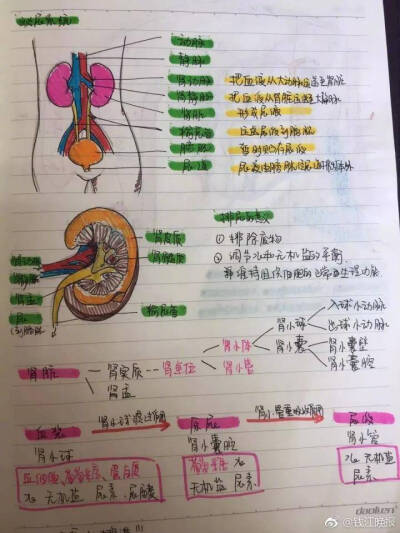 泌尿系统
动脉
静脉
肾动脉 把血液从大动脉运送至肾脏
肾静脉 把血液从肾脏运送至大静脉
肾脏 形成尿液
输尿管 运送尿液到膀胱
膀胱 暂时贮存尿液
尿道
肾皮质
肾髓质
肾动脉
肾静脉
肾盂
尿
输尿管
排尿的意义
① 排除废物
② 调节水和无机盐的平衡
并维持组织细胞的正常生理功能
肾脏
肾实质
肾盂
肾单位
肾小体
肾小管
肾小球
肾小囊
入球小动脉
出球小动脉
肾小囊壁
肾小囊腔
血浆 肾小球滤过作用 原尿 肾小管重吸收作用 尿液
肾小球 肾小囊腔 肾小管
血细胞、葡萄糖、蛋白质
水 无机盐 尿素、尿酸
葡萄糖 水
无机盐 尿素
水 无机盐
尿素
daolien
@钱江晚报